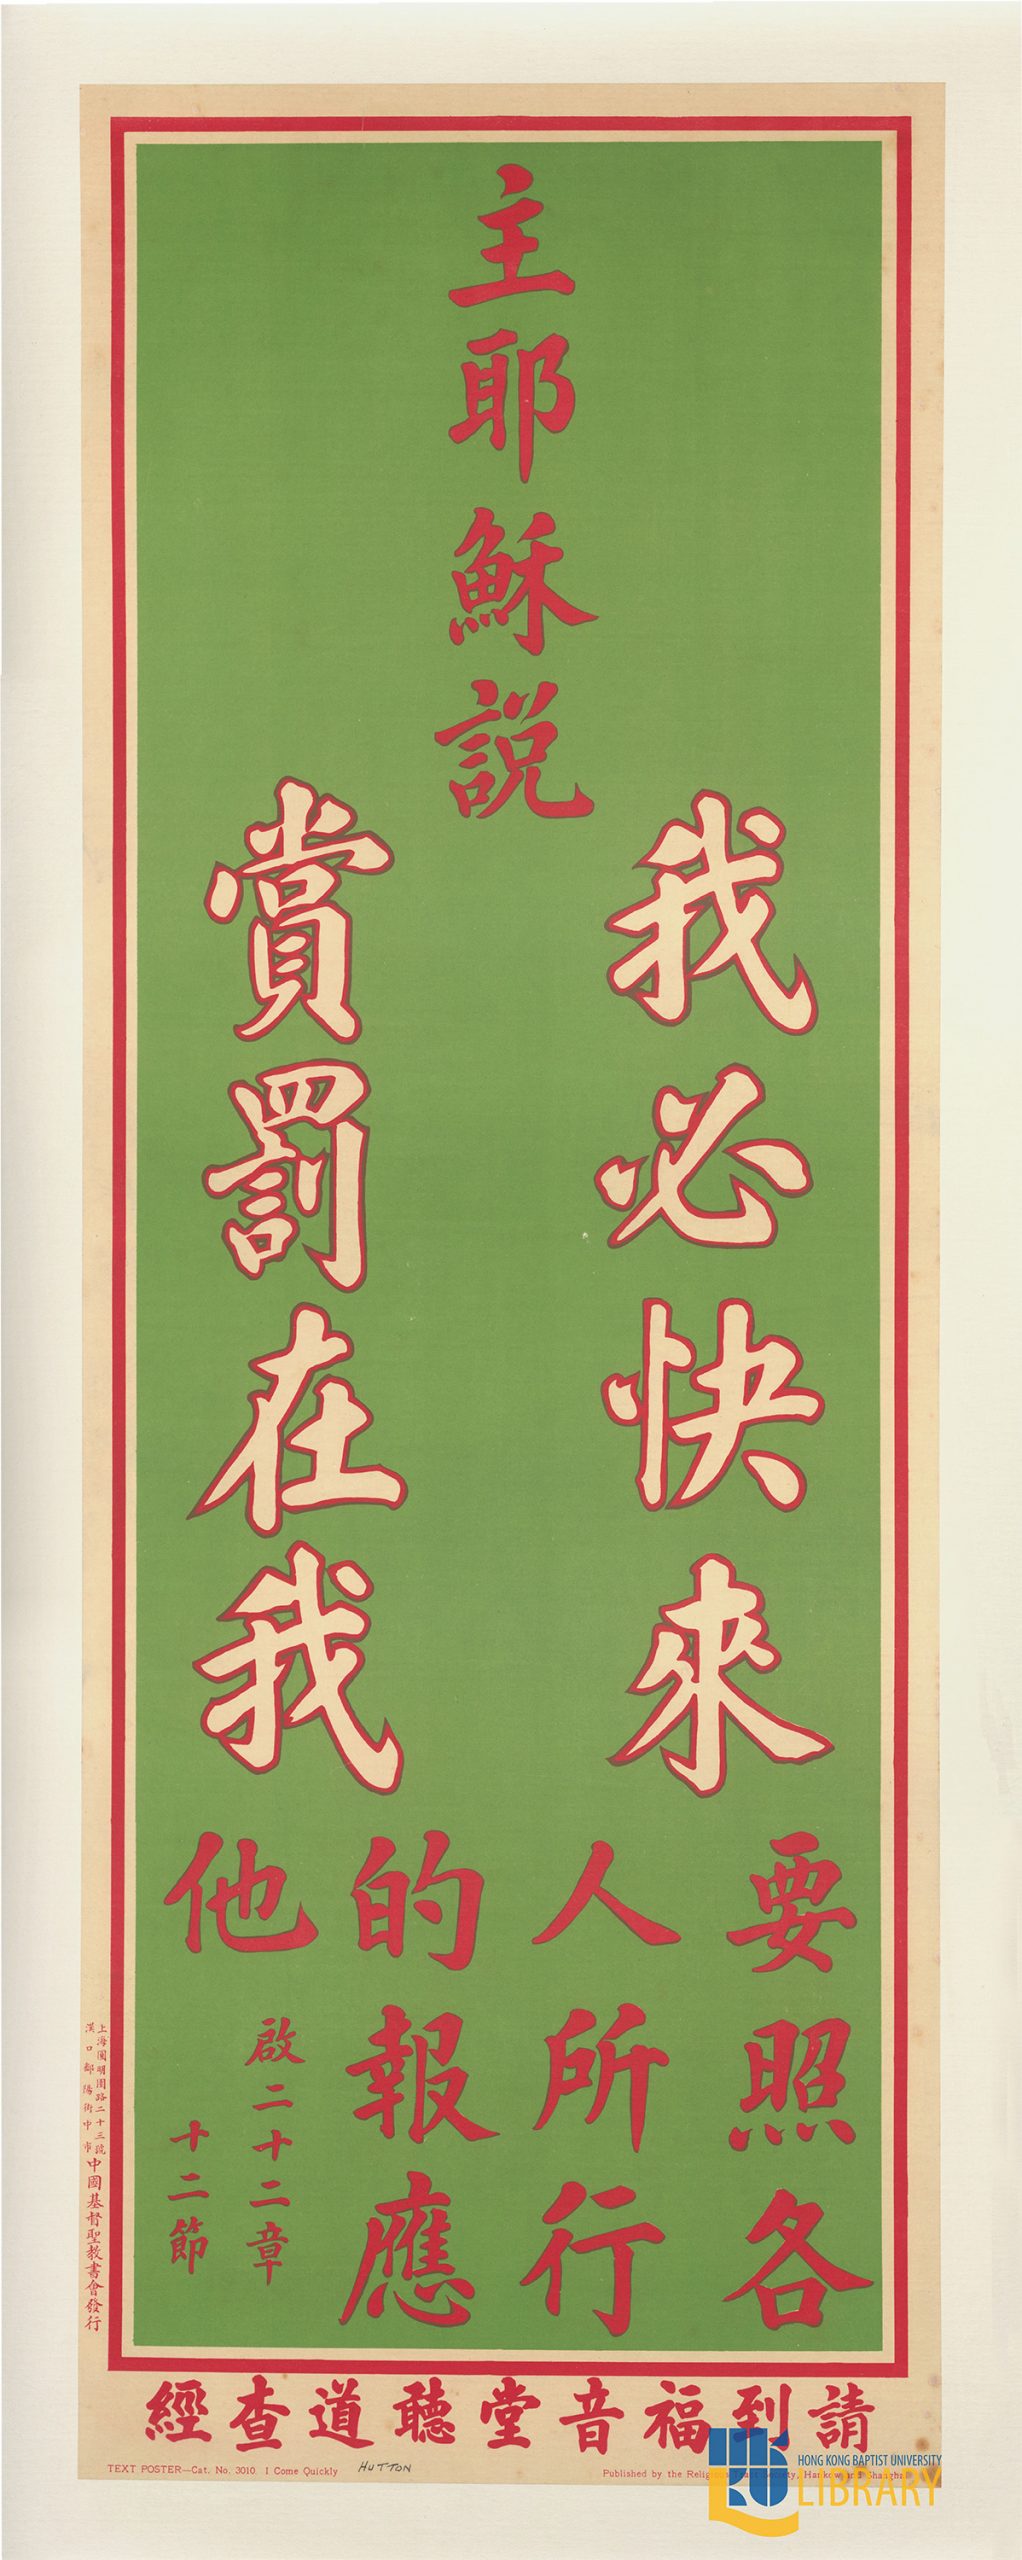 主耶穌説
我必快來
賞罰在我
要照各
人所行
的報應
他
啟二十二章
十二節
上海圓明園路二十三號
漢口鄱陽街中市
中國基督聖教書會發行
請到福音堂聽道查經
TEXT POSTER—Cat. No. 3010. I Come Quickly
HUTTON
Published by the Religious Tract Society, Hankow and Shanghai
HONG KONG BAPTIST UNIVERSITY
LIBRARY